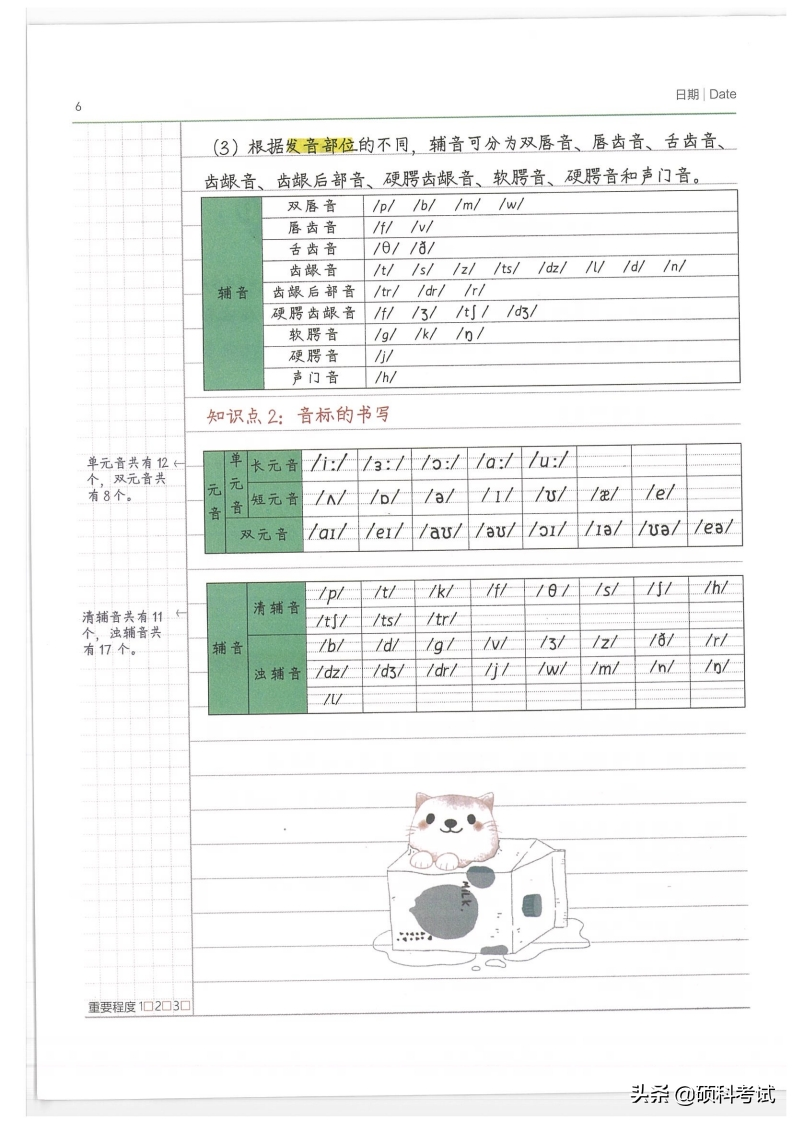 6
日期 | Date
(3) 根据发音部位的不同，辅音可分为双唇音、唇齿音、舌齿音、
齿龈音、齿龈后部音、硬腭齿龈音、软腭音、硬腭音和声门音。
辅音
双唇音 /p/ /b/ /m/ /w/
唇齿音 /f/ /v/
舌齿音 /θ/ /ð/
齿龈音 /t/ /s/ /z/ /ts/ /dz/ /l/ /d/ /n/
齿龈后部音 /tr/ /dr/ /r/
硬腭齿龈音 /f/ /ʒ/ /tʃ/ /dʒ/
软腭音 /g/ /k/ /ŋ/
硬腭音 /j/
声门音 /h/
知识点2：音标的书写
单元音共有12
个，双元音共
有8个。
元音
单元音
长元音 /i:/ /ɜ:/ /ɔ:/ /ɑ:/ /u:/
短元音 /ʌ/ /ɒ/ /ə/ /ɪ/ /ʊ/ /æ/ /e/
双元音 /aɪ/ /eɪ/ /aʊ/ /əʊ/ /ɔɪ/ /ɪə/ /ʊə/ /eə/
清辅音共有11
个，浊辅音共
有17个。
辅音
清辅音 /p/ /t/ /k/ /f/ /θ/ /s/ /ʃ/ /h/
/tʃ/ /ts/ /tr/
浊辅音 /b/ /d/ /g/ /v/ /ʒ/ /z/ /ð/ /r/
/dz/ /dʒ/ /dr/ /j/ /w/ /m/ /n/ /ŋ/
/l/
MILK.
重要程度 1□2□3□
头条 @硕科考试